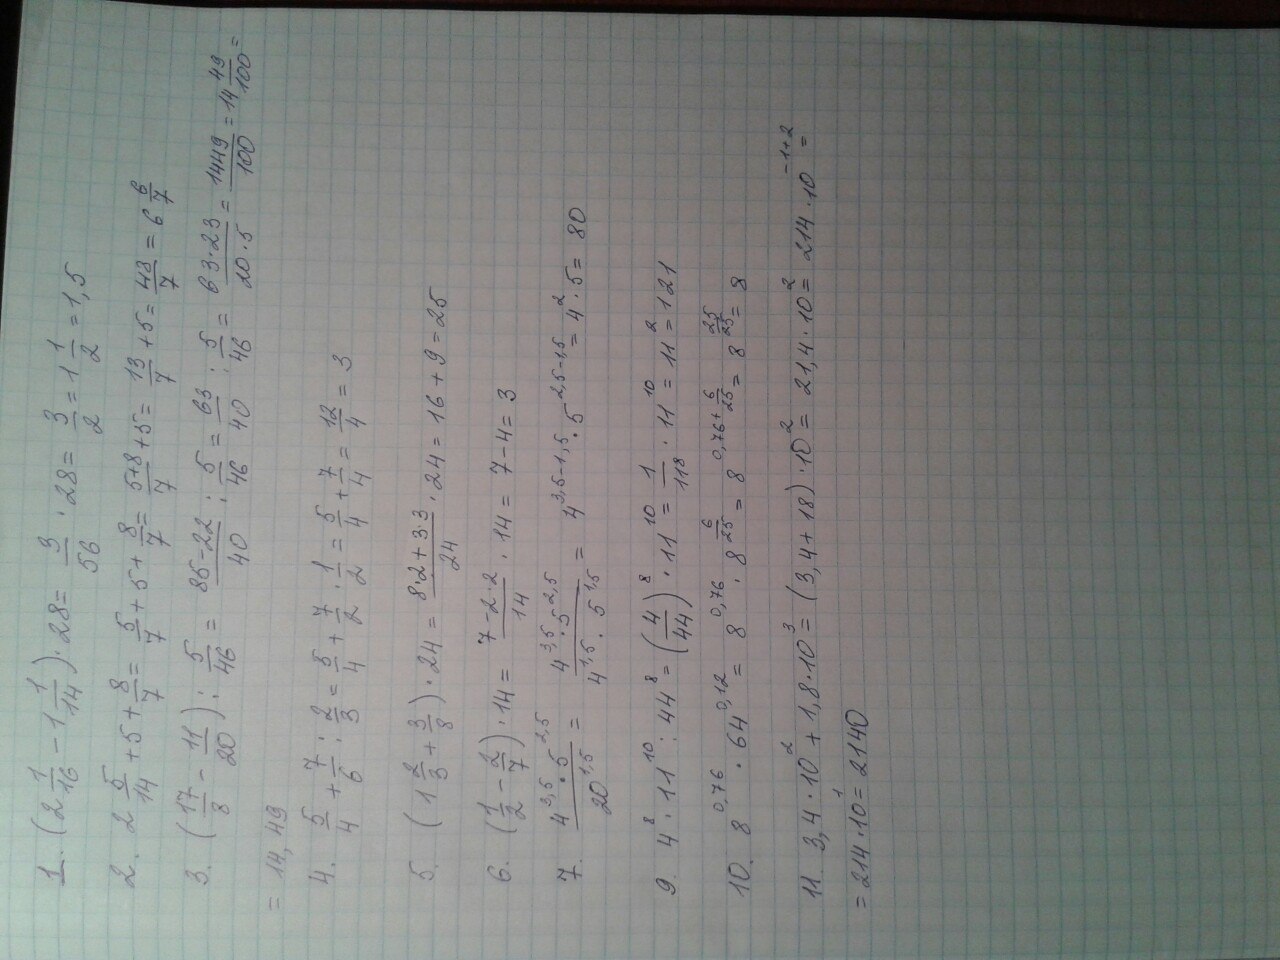 1. (2 1/16 - 1 1/14) · 28 = 3/56 · 28 = 3/2 = 1 1/2 = 1,5
2. 2 5/14 + 5 + 8/7 = 5/7 + 5 + 8/7 = 5+8/7 + 5 = 13/7 + 5 = 48/7 = 6 6/7
3. (17/8 - 11/20) : 5/46 = 85-22/40 : 5/46 = 63/40 : 5/46 = 63·23/20·5 = 1449/100 = 14 49/100 =
= 14,49
4. 5/4 + 7/6 : 2/3 = 5/4 + 7/2 · 1/2 = 5/4 + 7/4 = 12/4 = 3
5. (1 2/3 + 3/8) · 24 = 8·2+3·3/24 · 24 = 16 + 9 = 25
6. (1/2 - 2/7) · 14 = 7-2·2/14 · 14 = 7-4 = 3
7. 4^3,5 · 5^2,5 / 20^1,5 = 4^3,5 · 5^2,5 / 4^1,5 · 5^1,5 = 4^3,5-1,5 · 5^2,5-1,5 = 4^2 · 5 = 80
9. 4^8 · 11^10 : 44^8 = (4/44)^8 · 11^10 = 1/11^8 · 11^10 = 11^2 = 121
10. 8^0,76 · 64^0,12 = 8^0,76 · 8^6/25 = 8^0,76+6/25 = 8^25/25 = 8
11. 3,4 · 10^2 + 1,8 · 10^3 = (3,4 + 18) · 10^2 = 21,4 · 10^2 = 214 · 10^-1+2 =
= 214 · 10^1 = 2140